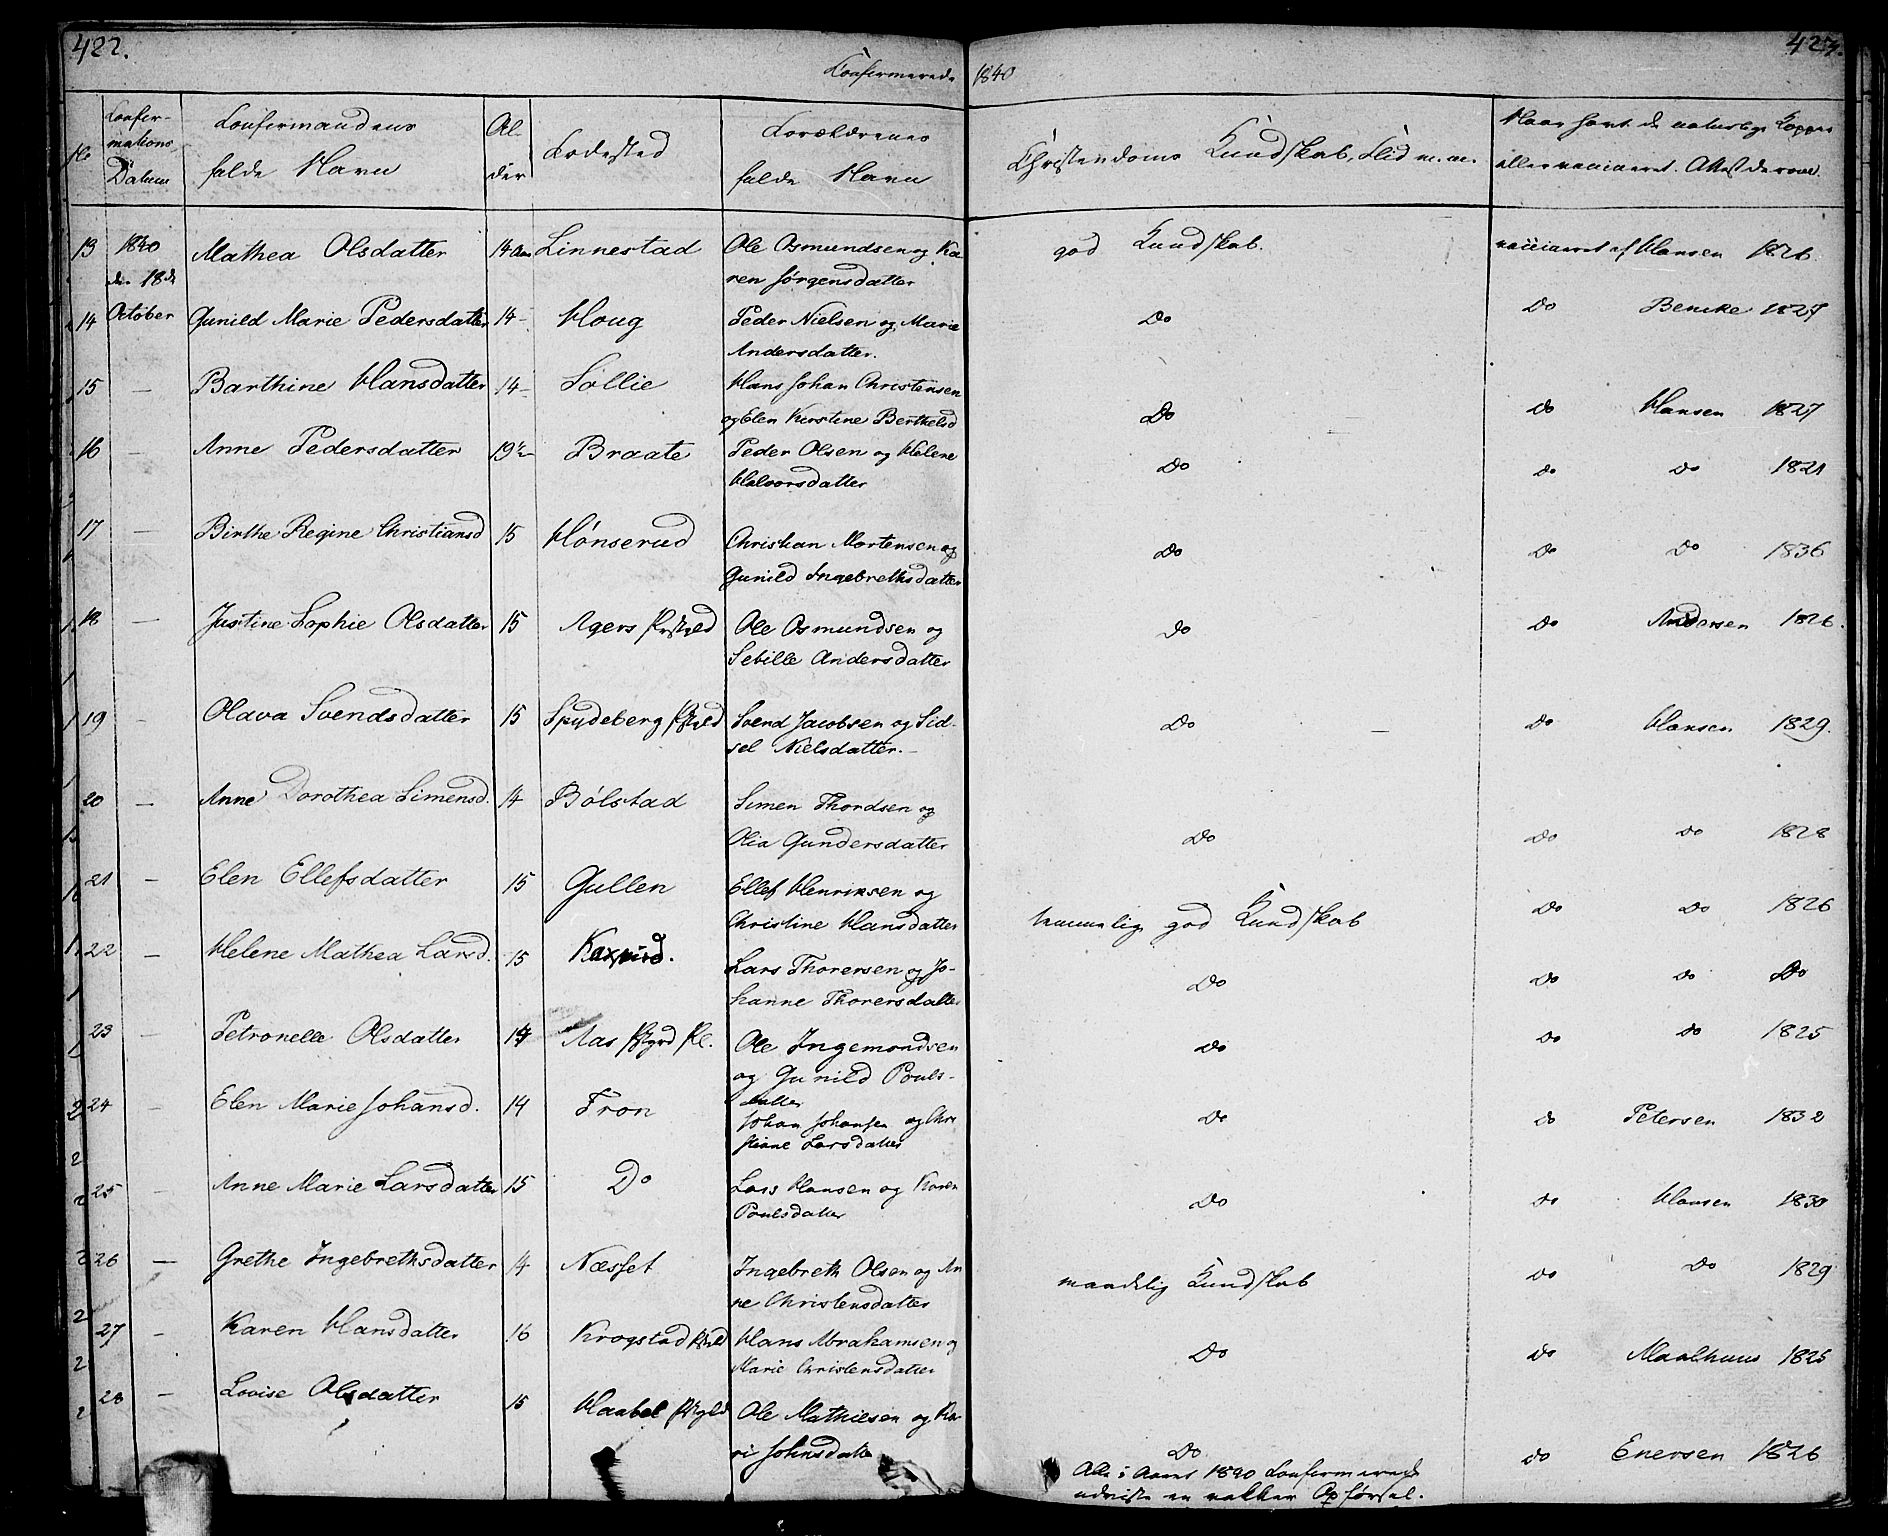 422.
Confirmerede 1840
423.
No
Confir-
mations
Datum
Confirmandens
fulde Navn
Al-
der
Fødested
Forældrenes
fulde Navn
Christendoms Kundskab, Flid m. m.
Naar havt de naturlige Kopper
eller vaccineret. Attest derom.
13 1840 Mathea Olsdatter 14 Aar Linnestad Ole Osmundsen og Ka- god Kundskab. vaccineret af Hansen 1826.
den 18de ren Jørgensdatter
14 October Gunild Marie Pedersdatter 14 - Houg Peder Nielsen og Marie Do Do Bencke 1827
Andersdatter.
15 — Barthine Hansdatter 14 - Sollie Hans Johan Christensen Do Do Hansen 1827
og Elen Kirstine Berthelsd
16 — Anne Pedersdatter 19½ Braate Peder Olsen og Helene Do Do Do 1821
Halvorsdatter
17 — Birthe Regine Christiansd 15 Hønserud Christian Mortensen og Do Do Do 1836
Gunild Ingebrethsdatter
18 — Justine Sophie Olsdatter 15 Agers Prstgld Ole Osmundsen og Do Do Andersen 1826.
Sebille Andersdatter
19 — Olava Svendsdatter 15 Spydeberg Prstgld Svend Jacobsen og Sid- Do Do Hansen 1829.
sel Nielsdatter. —
20 — Anne Dorothea Simensd. 14 Bølstad Simen Thordsen og
Olia Gundersdatter Do Do Do 1828
21 — Elen Ellefsdatter 15 Gullen Ellef Henriksen og
Christine Hansdatter temmelig god Kundskab Do Do 1826
22 — Helene Mathea Larsd. 15 Lars Thorersen og Jo- Do Do Do Do
hanne Thorersdatter
23 — Petronelle Olsdatter Aas Ole Ingemondsen Do Do Do 1825
og Gunild Pouls-
datter
24 — Elen Marie Johansd. 14 Fron Johan Johansen og Chri- Do Do Petersen 1832
stiane Larsdatter
25 — Anne Marie Larsdatter 15 Do Lars Hansen og Karen Do Do Hansen 1830
Poulsdatter
26 — Grethe Ingebrethsdatter 14 Næsset Ingebreth Olsen og An maadelig Kundskab Do Do 1829
ne Christensdatter
27 — Karen Hansdatter 16 Krogstad Prstgld Hans Abrahamsen og Do Do Maalhuus 1825
Marie Christensdatter
28 — Lovise Olsdatter 15 Haabel Prstgld Ole Mathiesen og Ka-
ri Johnsdatter Do Do Enersen 1826
Alle i Aaret 1840 Confirmerede
udviste en vakker Opførsel.